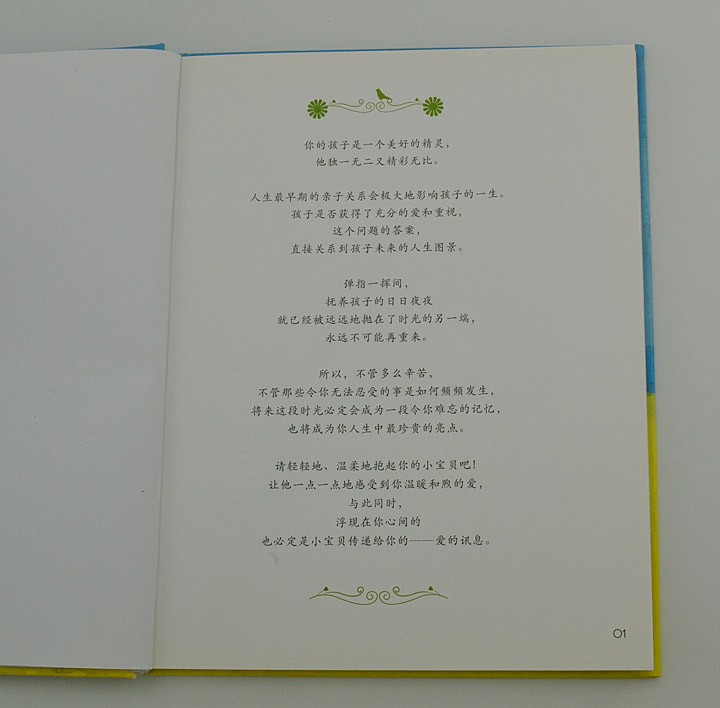 你的孩子是一个美好的精灵，
他独一无二又精彩无比。
人生最早期的亲子关系会极大地影响孩子的一生。
孩子是否获得了充分的爱和重视，
这个问题的答案，
直接关系到孩子未来的人生图景。
弹指一挥间，
抚养孩子的日日夜夜
就已经被远远地抛在了时光的另一端，
永远不可能再重来。
所以，不管多么辛苦，
不管那些令你无法忍受的事是如何频频发生，
将来这段时光必定会成为一段令你难忘的记忆，
也将成为你人生中最珍贵的亮点。
请轻轻地、温柔地抱起你的小宝贝吧！
让他一点一点地感受到你温暖和煦的爱，
与此同时，
浮现在你心间的
也必定是小宝贝传递给你的——爱的讯息。
01